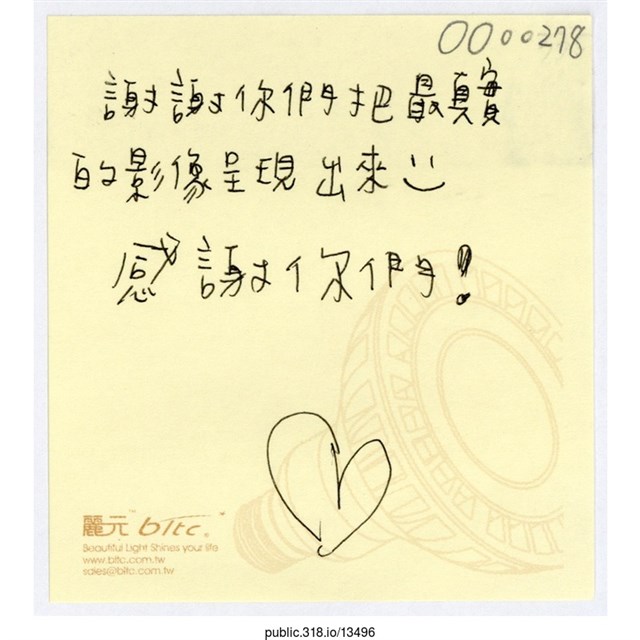 0000278
謝謝你們把最真實
的影像呈現出來
感謝你們!
麗元 bltc
Beautiful Light Shines your life
www.bltc.com.tw
sales@bltc.com.tw
public.318.io/13496